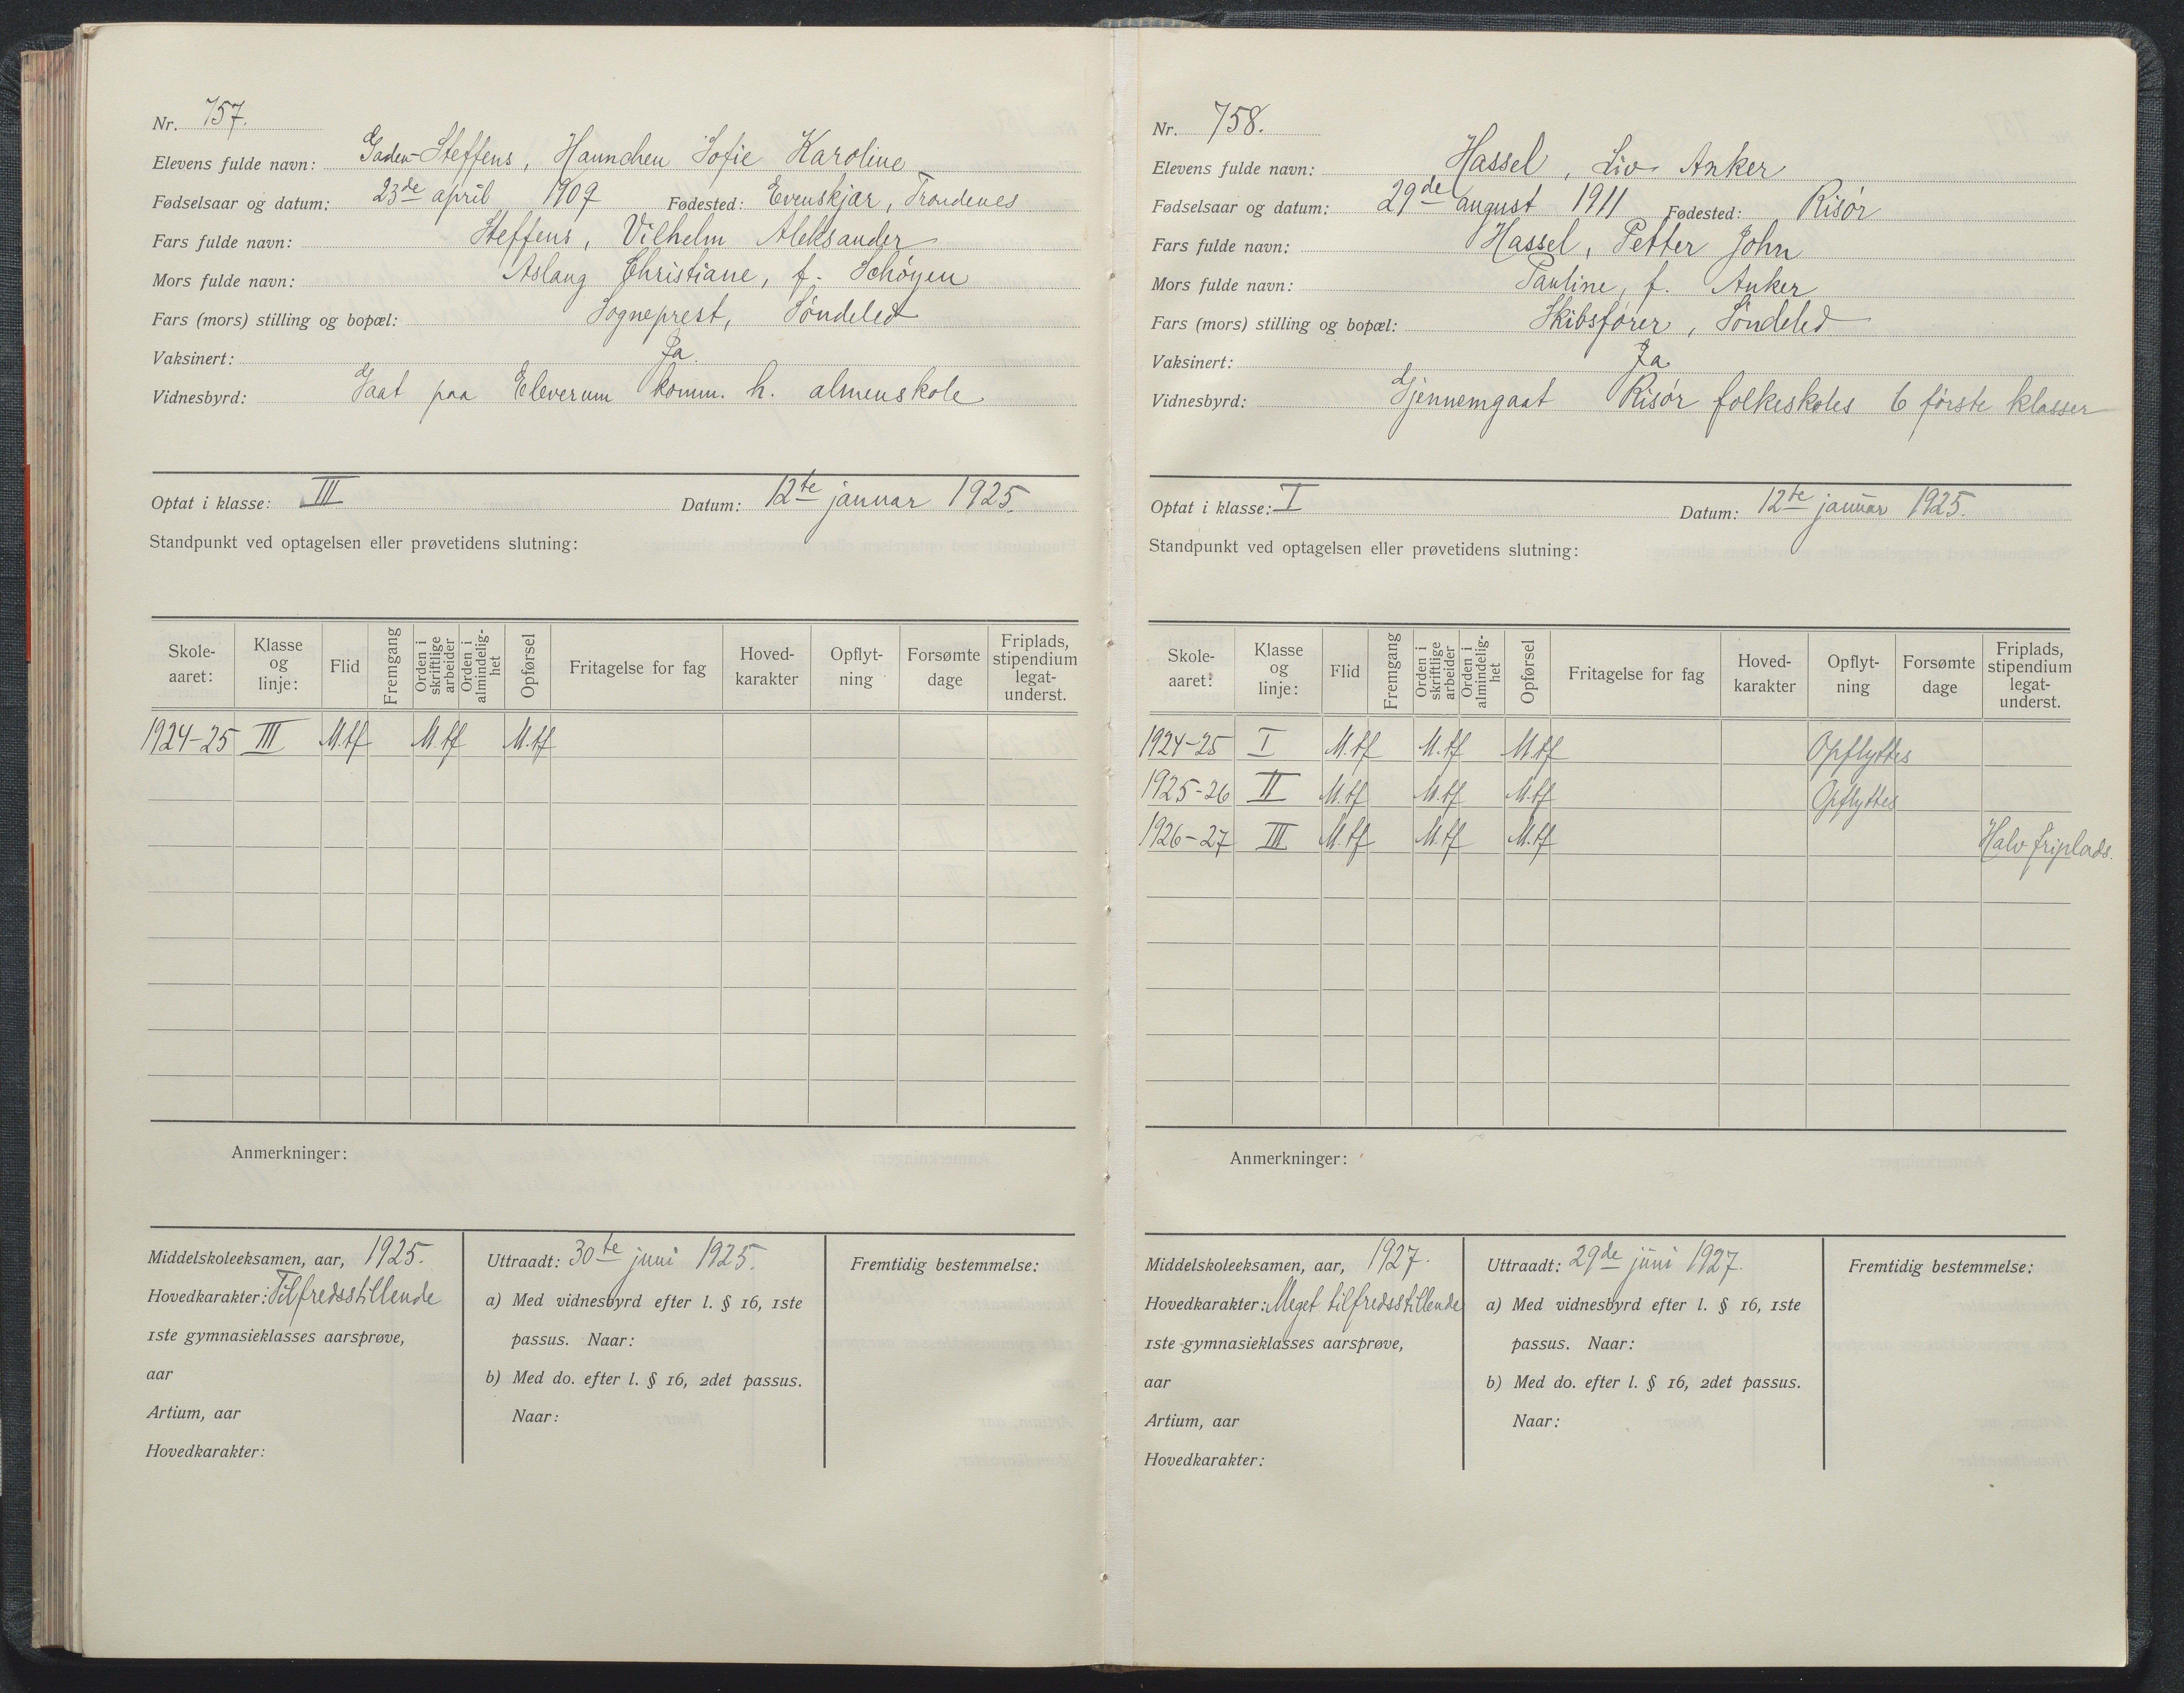 Nr. 757.
Elevens fulde navn: Gaden-Steffens, Hannchen Sofie Karoline
Fødselsaar og datum: 23de april 1909 Fødested: Evenskjær, Trondenes
Fars fulde navn: Steffens, Vilhelm Aleksander
Mors fulde navn: Aslaug Christiane, f. Schøyen
Fars (mors) stilling og bopæl: Sogneprest, Søndeled
Vaksinert: Ja.
Vidnesbyrd: Gaat paa Eleverum komm. h. almenskole
Optat i klasse: III Datum: 12te januar 1925.
Standpunkt ved optagelsen eller prøvetidens slutning:
Skole-aaret: Klasse og linje: Flid Fremgang Orden i skriftlige arbeider Orden i almindelig-het Opførsel Fritagelse for fag Hoved-karakter Opflyt-ning Forsømte dage Friplads, stipendium legat-underst.
1924-25 III M.tf M.tf M.tf
Anmerkninger:
Middelskoleeksamen, aar, 1925.
Hovedkarakter: Tilfredsstillende
1ste gymnasieklasses aarsprøve,
aar
Artium, aar
Hovedkarakter:
Uttraadt: 30te juni 1925.
a) Med vidnesbyrd efter l. § 16, 1ste
passus. Naar:
b) Med do. efter l. § 16, 2det passus.
Naar:
Fremtidig bestemmelse:
Nr. 758.
Elevens fulde navn: Hassel, Liv Anker
Fødselsaar og datum: 29de august 1911 Fødested: Risør
Fars fulde navn: Hassel, Petter John
Mors fulde navn: Pauline, f. Anker
Fars (mors) stilling og bopæl: Skibsfører, Søndeled
Vaksinert: Ja
Vidnesbyrd: Gjennemgaat Risør folkeskoles 6 første klasser
Optat i klasse: I Datum: 12te januar 1925.
Standpunkt ved optagelsen eller prøvetidens slutning:
Skole-aaret: Klasse og linje: Flid Fremgang Orden i skriftlige arbeider Orden i almindelig-het Opførsel Fritagelse for fag Hoved-karakter Opflyt-ning Forsømte dage Friplads, stipendium legat-underst.
1924-25 I M.tf M.tf M.tf Opflyttes
1925-26 II M.tf M.tf M.tf Opflyttes
1926-27 III M.tf M.tf M.tf Halv friplads.
Anmerkninger:
Middelskoleeksamen, aar, 1927.
Hovedkarakter: Meget tilfredsstillende
1ste gymnasieklasses aarsprøve,
aar
Artium, aar
Hovedkarakter:
Uttraadt: 29de juni 1927.
a) Med vidnesbyrd efter l. § 16, 1ste
passus. Naar:
b) Med do. efter l. § 16, 2det passus.
Naar:
Fremtidig bestemmelse: